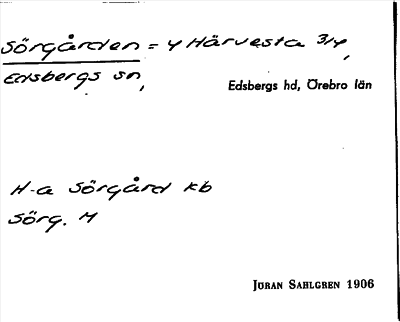 Sörgården = Y Härvesta 3/4,
Edsbergs sn,
Edsbergs hd, Örebro län
H-a Sörgård kb
Sörg. H
JÖRAN SAHLGREN 1906